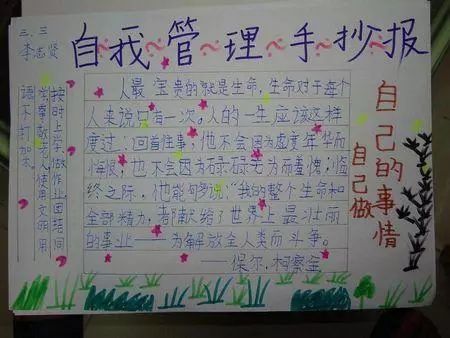 自我管理手抄报
三.三
李志贤
按时上学做作业团结同
学尊敬老人使用文明用
语不打架
人最宝贵的就是生命,生命对于每个
人来说只有一次。人的一生应该这样
度过:回首往事,他不会因为虚度年华而
悔恨,也不会因为碌碌无为而羞愧;临
终之际,他能够说:“我的整个生命和
全部精力,都献给了世界上最壮丽
的事业——为解放全人类而斗争。
——保尔.柯察金
自己的事情
自己做